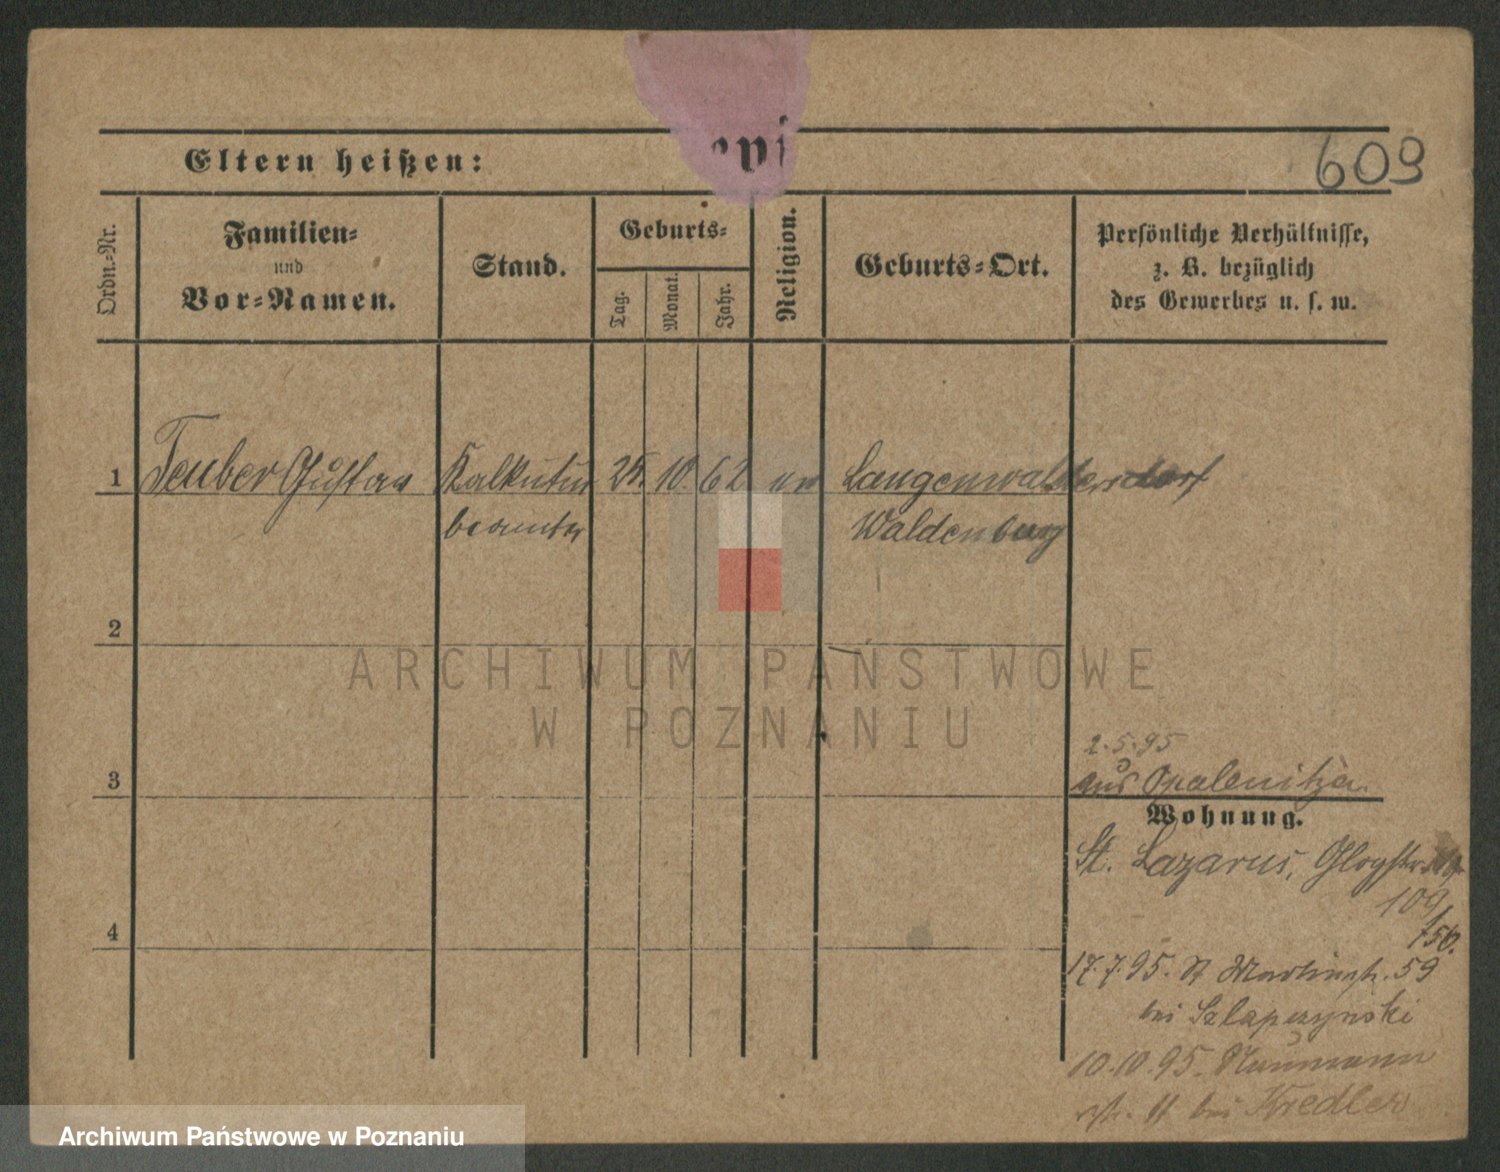 Eltern heißen:
609
Ordn.-Nr.
Familien-
und
Vor-Namen.
Stand.
Geburts-
Tag.
Monat.
Jahr.
Religion.
Geburts-Ort.
Persönliche Verhältnisse,
z. B. bezüglich
des Gewerbes u. s. w.
1 Teuber Gustav 10 62 Langenwaltersdorf
beamter Waldenburg
2
ARCHIWUM PAŃSTWOWE
W POZNANIU
2.5.95
3 aus Opalenitza
Wohnung.
St. Lazarus,
109/
4 156.
17.7.95. St Martinstr. 59
bei Szlapczynski
10.10.95. Naumann
str. 11 bei Kredler
Archiwum Państwowe w Poznaniu